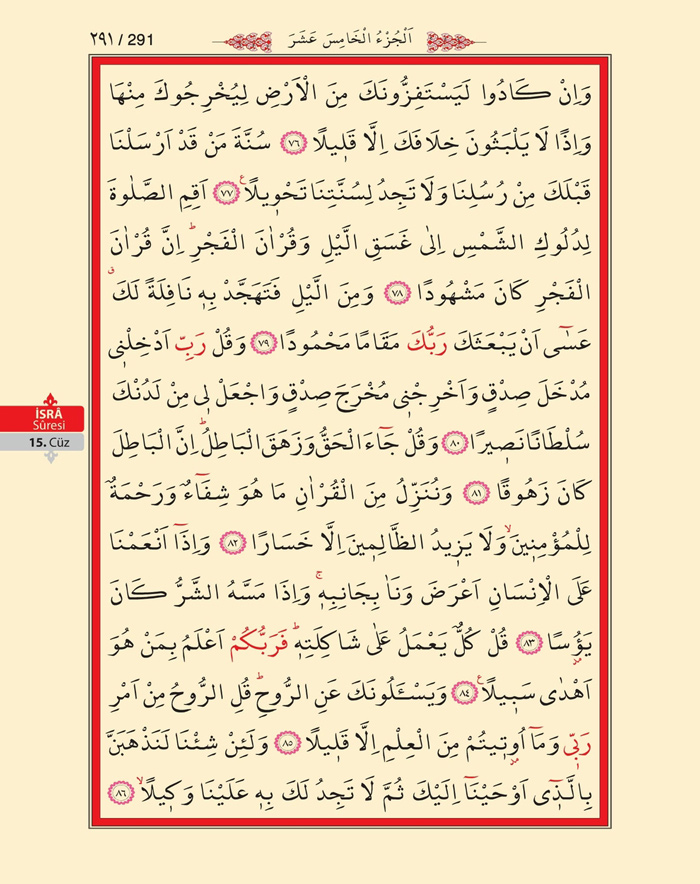 ٢٩١ / 291
اَلْجُزْءُ الْخَامِسَ عَشَرَ
وَاِنْ كَادُوا لَيَسْتَفِزُّونَكَ مِنَ الْاَرْضِ لِيُخْرِجُوكَ مِنْهَا
وَاِذًا لَا يَلْبَثُونَ خِلَافَكَ اِلَّا قَل۪يلًا ﴿٧٦﴾ سُنَّةَ مَنْ قَدْ اَرْسَلْنَا
قَبْلَكَ مِنْ رُسُلِنَا وَلَا تَجِدُ لِسُنَّتِنَا تَحْو۪يلًا۟ ﴿٧٧﴾ اَقِمِ الصَّلٰوةَ
لِدُلُوكِ الشَّمْسِ اِلٰى غَسَقِ الَّيْلِ وَقُرْاٰنَ الْفَجْرِۜ اِنَّ قُرْاٰنَ
الْفَجْرِ كَانَ مَشْهُودًا ﴿٧٨﴾ وَمِنَ الَّيْلِ فَتَهَجَّدْ بِه۪ نَافِلَةً لَكَۗ
عَسٰٓى اَنْ يَبْعَثَكَ رَبُّكَ مَقَامًا مَحْمُودًا ﴿٧٩﴾ وَقُلْ رَبِّ اَدْخِلْن۪ي
مُدْخَلَ صِدْقٍ وَاَخْرِجْن۪ي مُخْرَجَ صِدْقٍ وَاجْعَلْ ل۪ي مِنْ لَدُنْكَ
سُلْطَانًا نَص۪يرًا ﴿٨٠﴾ وَقُلْ جَٓاءَ الْحَقُّ وَزَهَقَ الْبَاطِلُۜ اِنَّ الْبَاطِلَ
كَانَ زَهُوقًا ﴿٨١﴾ وَنُنَزِّلُ مِنَ الْقُرْاٰنِ مَا هُوَ شِفَٓاءٌ وَرَحْمَةٌ
لِلْمُؤْمِن۪ينَۙ وَلَا يَز۪يدُ الظَّالِم۪ينَ اِلَّا خَسَارًا ﴿٨٢﴾ وَاِذَٓا اَنْعَمْنَا
عَلَى الْاِنْسَانِ اَعْرَضَ وَنَاٰ بِجَانِبِه۪ۚ وَاِذَا مَسَّهُ الشَّرُّ كَانَ
يَؤُ۫سًا ﴿٨٣﴾ قُلْ كُلٌّ يَعْمَلُ عَلٰى شَاكِلَتِه۪ۜ فَرَبُّكُمْ اَعْلَمُ بِمَنْ هُوَ
اَهْدٰى سَب۪يلًا۟ ﴿٨٤﴾ وَيَسْـَٔلُونَكَ عَنِ الرُّوحِۜ قُلِ الرُّوحُ مِنْ اَمْرِ
رَبّ۪ي وَمَٓا اُو۫ت۪يتُمْ مِنَ الْعِلْمِ اِلَّا قَل۪يلًا ﴿٨٥﴾ وَلَئِنْ شِئْنَا لَنَذْهَبَنَّ
بِالَّذ۪ٓي اَوْحَيْنَٓا اِلَيْكَ ثُمَّ لَا تَجِدُ لَكَ بِه۪ عَلَيْنَا وَك۪يلًاۙ ﴿٨٦﴾
İSRÂ
Sûresi
15. Cüz